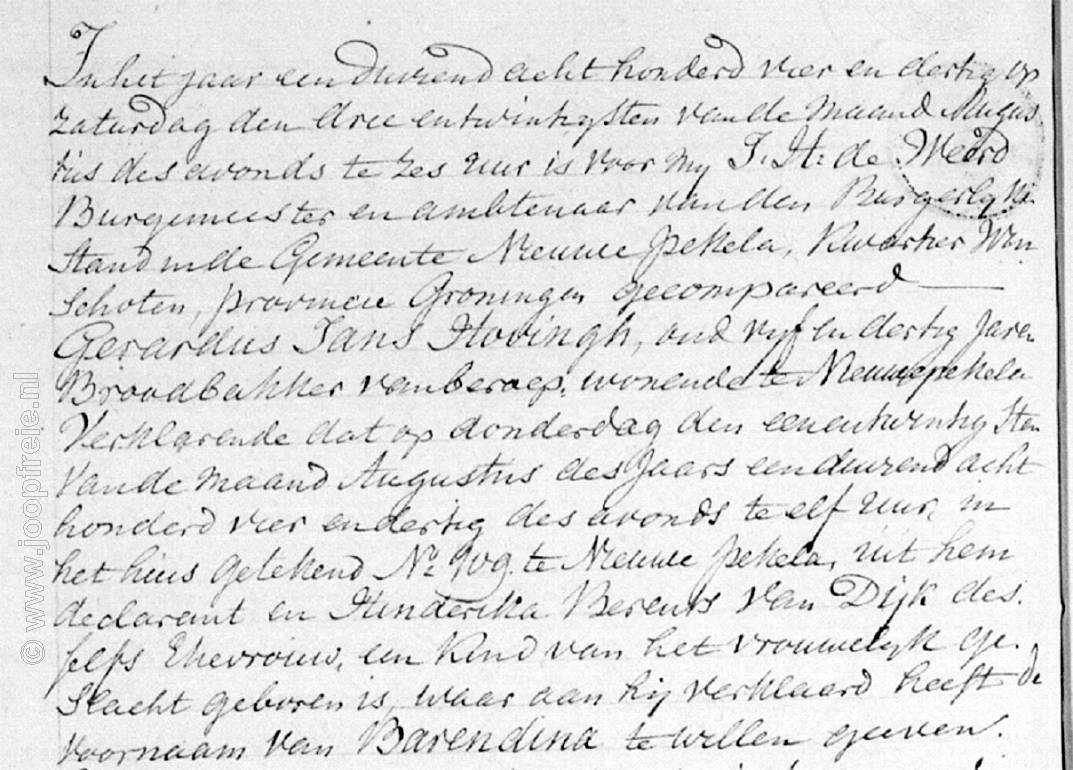 In het jaar een duizend acht honderd vier en dertig op
Zaturdag den drie entwintigsten van de maand Augus
tus des avonds te zes uur is voor my J. H: de Weerd
Burgemeester en ambtenaar van den Burgerlyke
Stand in de Gemeente Nieuwe Pekela, Kwartier Win
schoten, provincie Groningen gecompareerd
Gerardus Jans Hovingh, oud vyf en dertig Jaren
Broodbakker van beroep, wonende te Nieuwepekela
Verklarende dat op donderdag den eenentwintig sten
Van de maand Augustus des Jaars een duizend acht
honderd vier en dertig des avonds te elf uur, in
het huis getekend No. te Nieuwe Pekela, uit hem
declarant en Hinderika Berents van Dijk des
selfs Ehevrouw, een Kind van het vrouwelyk ge.
slacht geboren is, waar aan hij verklaard heeft de
voornaam van Barendina te willen geeven.
© www.joopfreje.nl